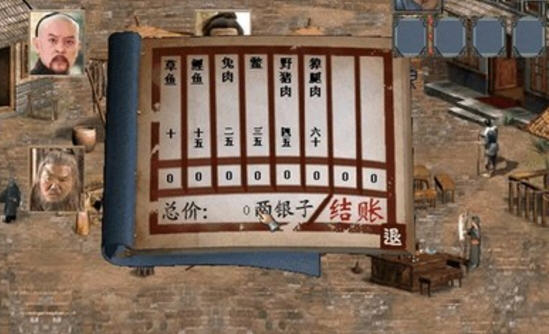 草鱼 鲤鱼 兔肉 鳖 野猪肉 獐腿肉
十 十五 二五 三五 四五 六十
0 0 0 0 0 0 0 0
总价： 0两银子 结账
退